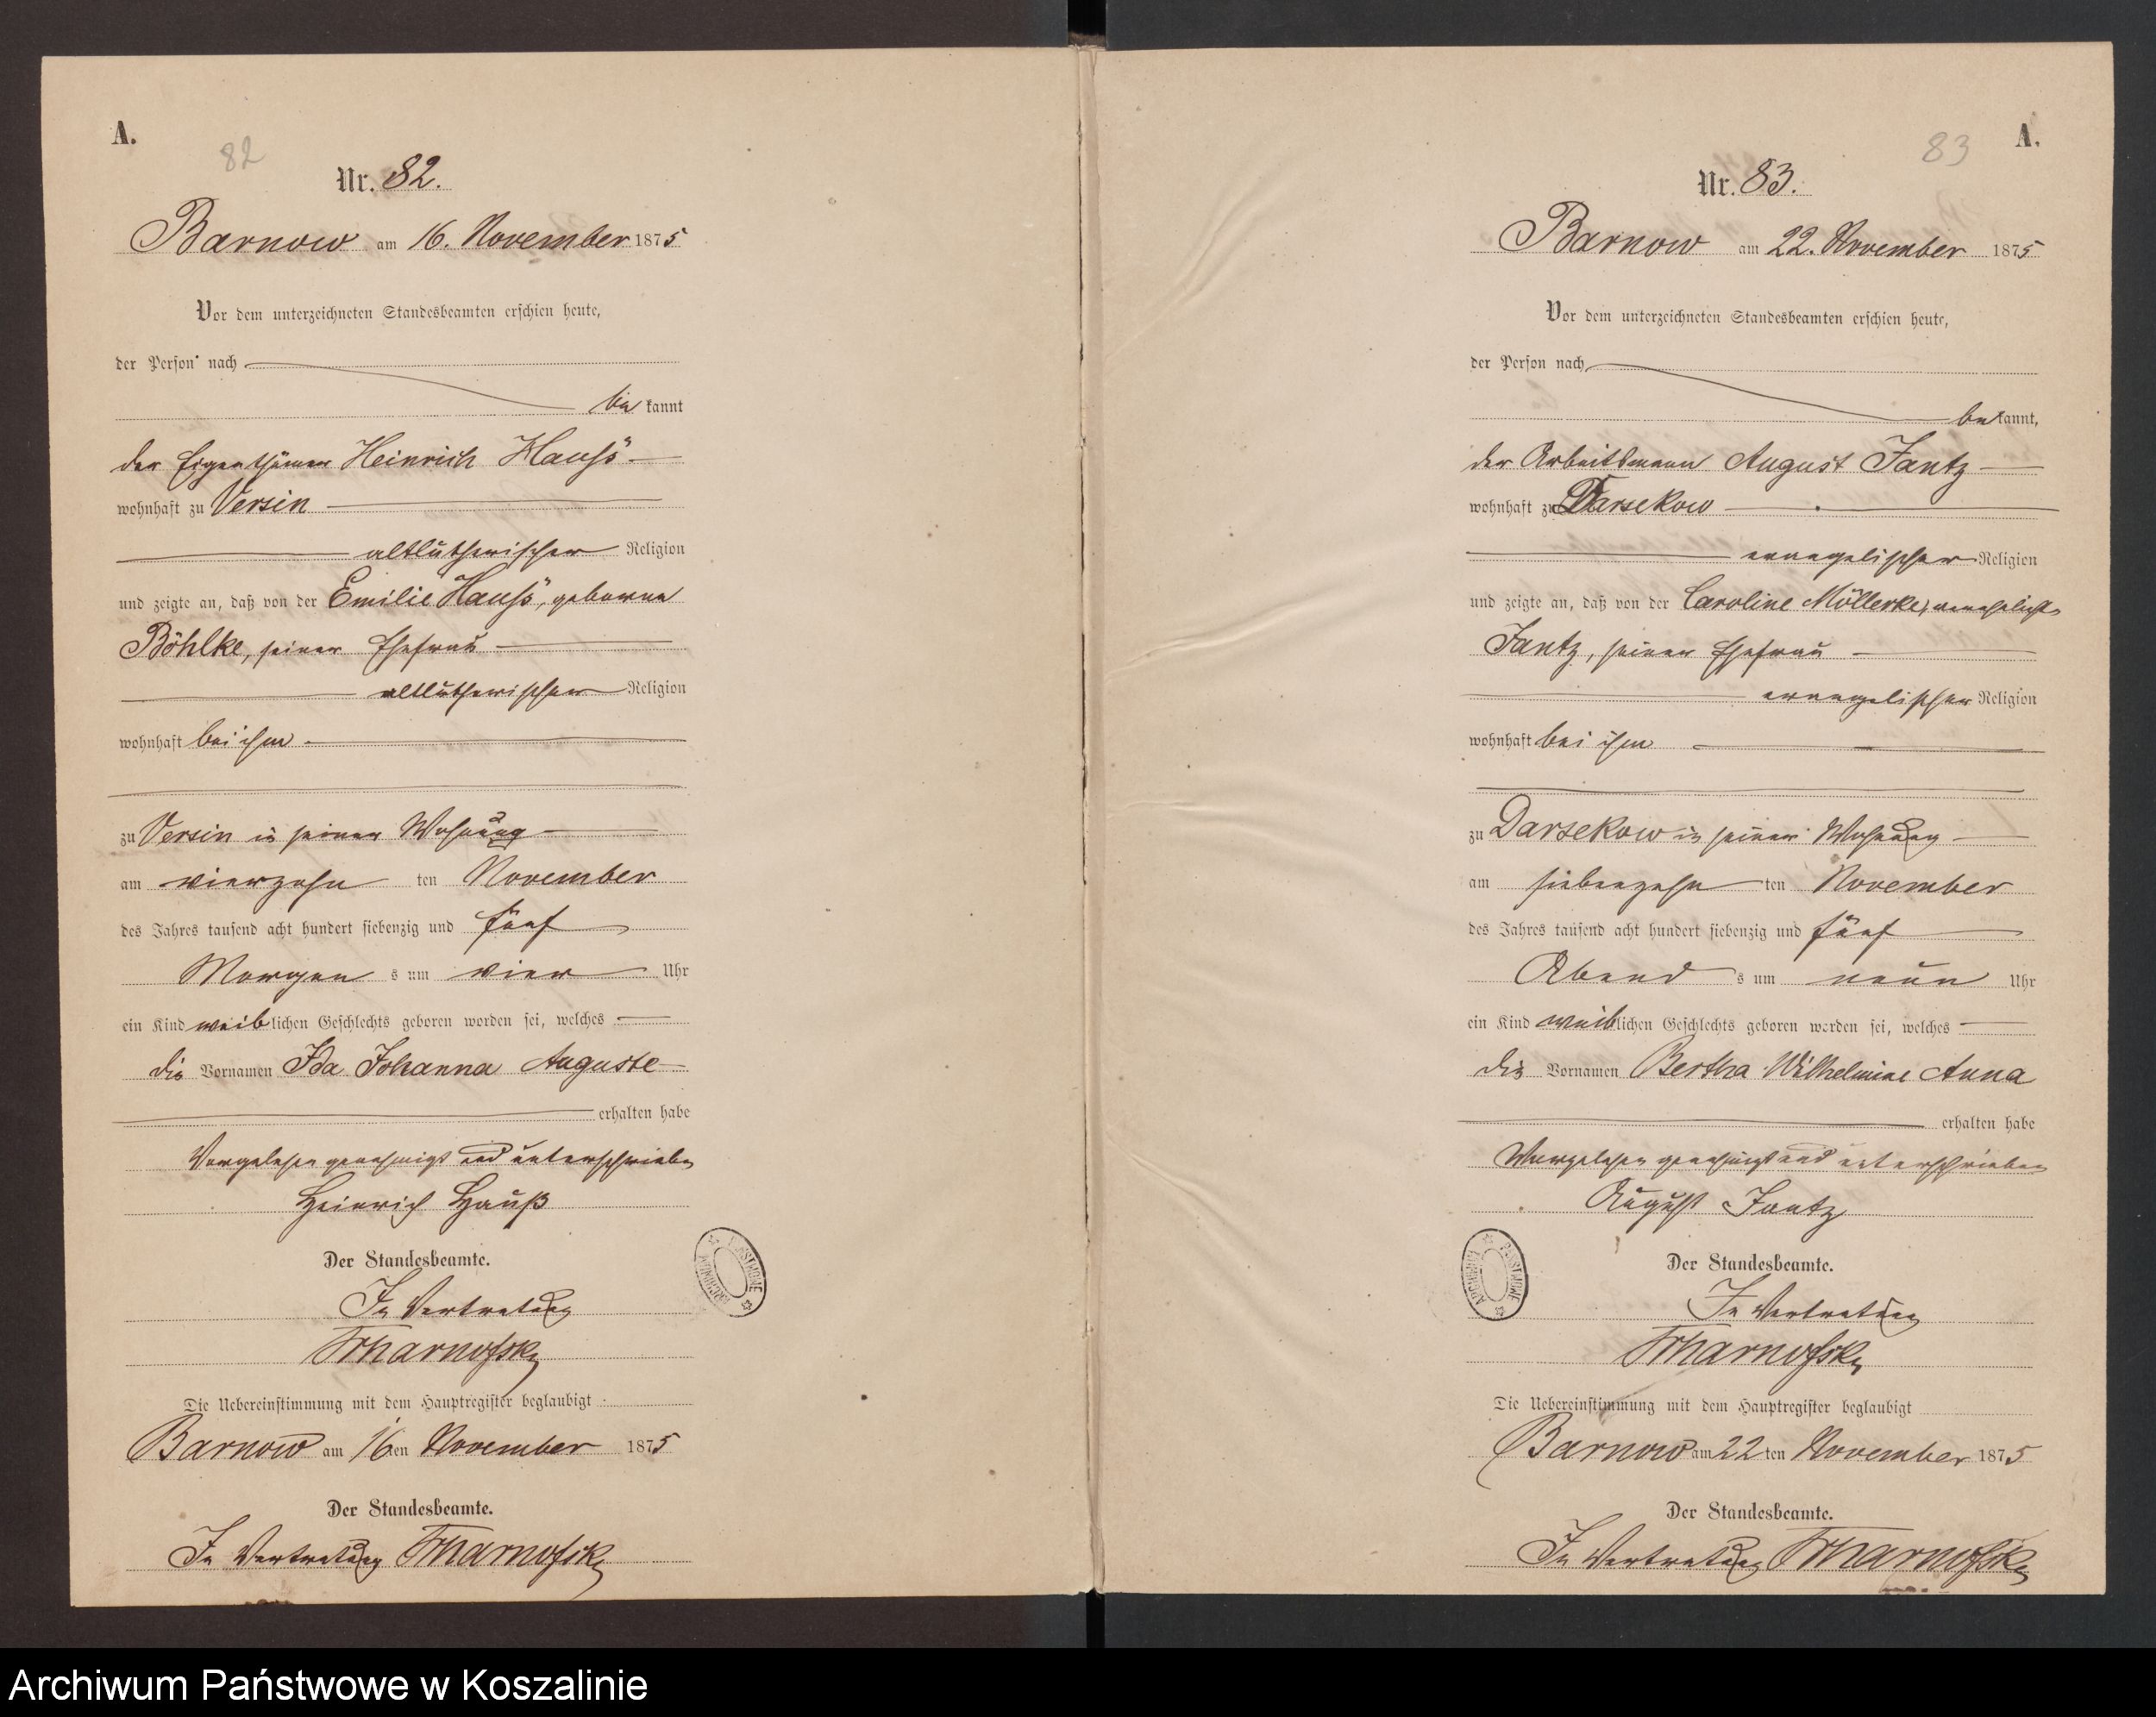 A.
82
Nr. 82.
Barnow am 16. November 1875
Vor dem unterzeichneten Standesbeamten erschien heute,
der Person nach
be kannt
der Eigenthümer Heinrich Hauß
wohnhaft zu Versin
altlutherischer Religion
und zeigte an, daß von der Emilie Hauß, geborne
Böhlke, seiner Ehefrau
altlutherischer Religion
wohnhaft bei ihm
zu Versin in seiner Wohnung
am vierzehn ten November
des Jahres tausend acht hundert siebenzig und fünf
Morgen s um vier Uhr
ein Kind weiblichen Geschlechts geboren worden sei, welches
die Vornamen Ida Johanna Auguste
erhalten habe
Vorgelesen genehmigt und unterschrieben
Heinrich Hauß
Der Standesbeamte.
In Vertretung
Die Uebereinstimmung mit dem Hauptregister beglaubigt
Barnow am 16ten November 1875
Der Standesbeamte.
In Vertretung
83
A.
Nr. 83.
Barnow am 22. November 1875
Vor dem unterzeichneten Standesbeamten erschien heute,
der Person nach
bekannt,
der Arbeitsmann August Jantz
wohnhaft zu Darsekow
evangelischer Religion
und zeigte an, daß von der Caroline Möllerke, verehelicht
Jantz, seiner Ehefrau
evangelischer Religion
wohnhaft bei ihm
zu Darsekow in seiner Wohnung
am siebenzehn ten November
des Jahres tausend acht hundert siebenzig und fünf
Abend s um neun Uhr
ein Kind weiblichen Geschlechts geboren worden sei, welches
die Vornamen Bertha Wilhelmine Anna
erhalten habe
Vorgelesen genehmigt und unterschrieben
August Jantz
Der Standesbeamte.
In Vertretung
Die Uebereinstimmung mit dem Hauptregister beglaubigt
Barnow am 22 ten November 1875
Der Standesbeamte.
In Vertretung
Archiwum Państwowe w Koszalinie